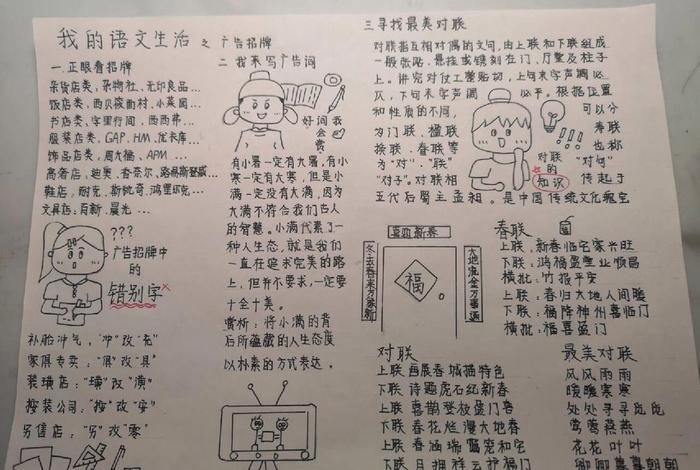 我的语文生活之广告招牌
一.正眼看招牌
杂货店类,杂物社、无印良品…
饭店类、西贝莜面村、小菜园…
书店类、字里行间、西西弗…
服装店类、GAP、HM、优衣库…
饰品店类、周大福、APM …
高奢店、迪奥、香奈尔、路易斯登威…
鞋店、耐克、斯凯奇、鸿星尔克…
文具店:百新、晨光 …
???
广告招牌中
的
错别字
补胎冲气,"冲"改"充"
家俱专卖:"俱"改"具"
装璜店:"璜"改"潢"
按装公司:"按"改"安"
另售店:"另"改"零"
二 我来写广告词
好词我
会赏
有小暑一定有大暑,有小
寒一定有大寒,但是小
满一定没有大满,因为
大满不符合我们古人
的智慧。小满代表了一
种人生态,就是我们
一直在追求完美的路
上,但并不要求,一定要
十全十美。
赏析:将小满的背
后所蕴藏的人生态度
以朴素的方式表达。
三寻找最美对联
对联指互相对偶的文句,由上联和下联组成
一般张贴、悬挂或镌刻在门、厅壁及柱子
上。讲究对仗工整贴切,上句末字声调必
仄,下句末字声调必平。根据位置
和性质的不同,可以分
为门联、楹联寿联
挽联、春联等也称
为"对"、"联""对句"
"对子"。对联相传起于
五代后蜀主孟昶。是中国传统文化瑰宝
对联
的
知识
喜迎新春
冬去春来万象新
大地流金万事通
福
春联
上联:新春临宅家兴旺
下联:鸿福盈门业顺昌
横批:竹报平安
上联:春归大地人间暖
下联:福降神州喜临门
横批:福喜盈门
对联
上联画展春城描特色
下联诗题虎石纪新春
上联喜鹊登放盛门喜
下联春花烂漫大地春
上联春涵瑞霭笼和宅
下联月拥祥云护福门
最美对联
风风雨雨
暖暖寒寒
处处寻寻觅觅
莺莺燕燕
花花叶叶
卿卿暮暮朝朝